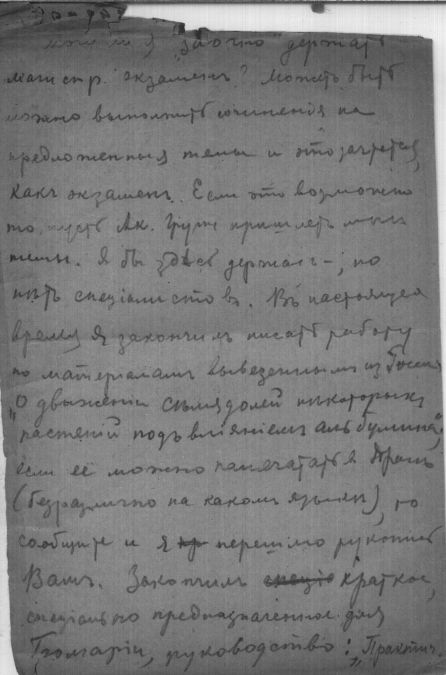 я "заочно" держать
магистр. экзаменъ? Можетъ быть
можно выполнить сочиненія на
предложенныя темы и это зачтется,
какъ экзаменъ. Если это возможно
то, пусть Ак. Групп пришлетъ мнѣ
темы. Я бы здѣсь держалъ –, но
нѣтъ спеціалистовъ. Въ настоящее
время я закончилъ писать работу
по матеріаламъ вывезеннымъ из Россіи
"О движеніи сѣмядолей нѣкоторыхъ
растеній подъ вліяніемъ альбумина",
если её можно напечатать въ Прагѣ
(безразлично на какомъ языкѣ), то
сообщите и я пр перешлю рукопись
Вамъ. Закончилъ спеціа краткое,
спеціально предназначенное для
Болгаріи, руководство: "Практич.